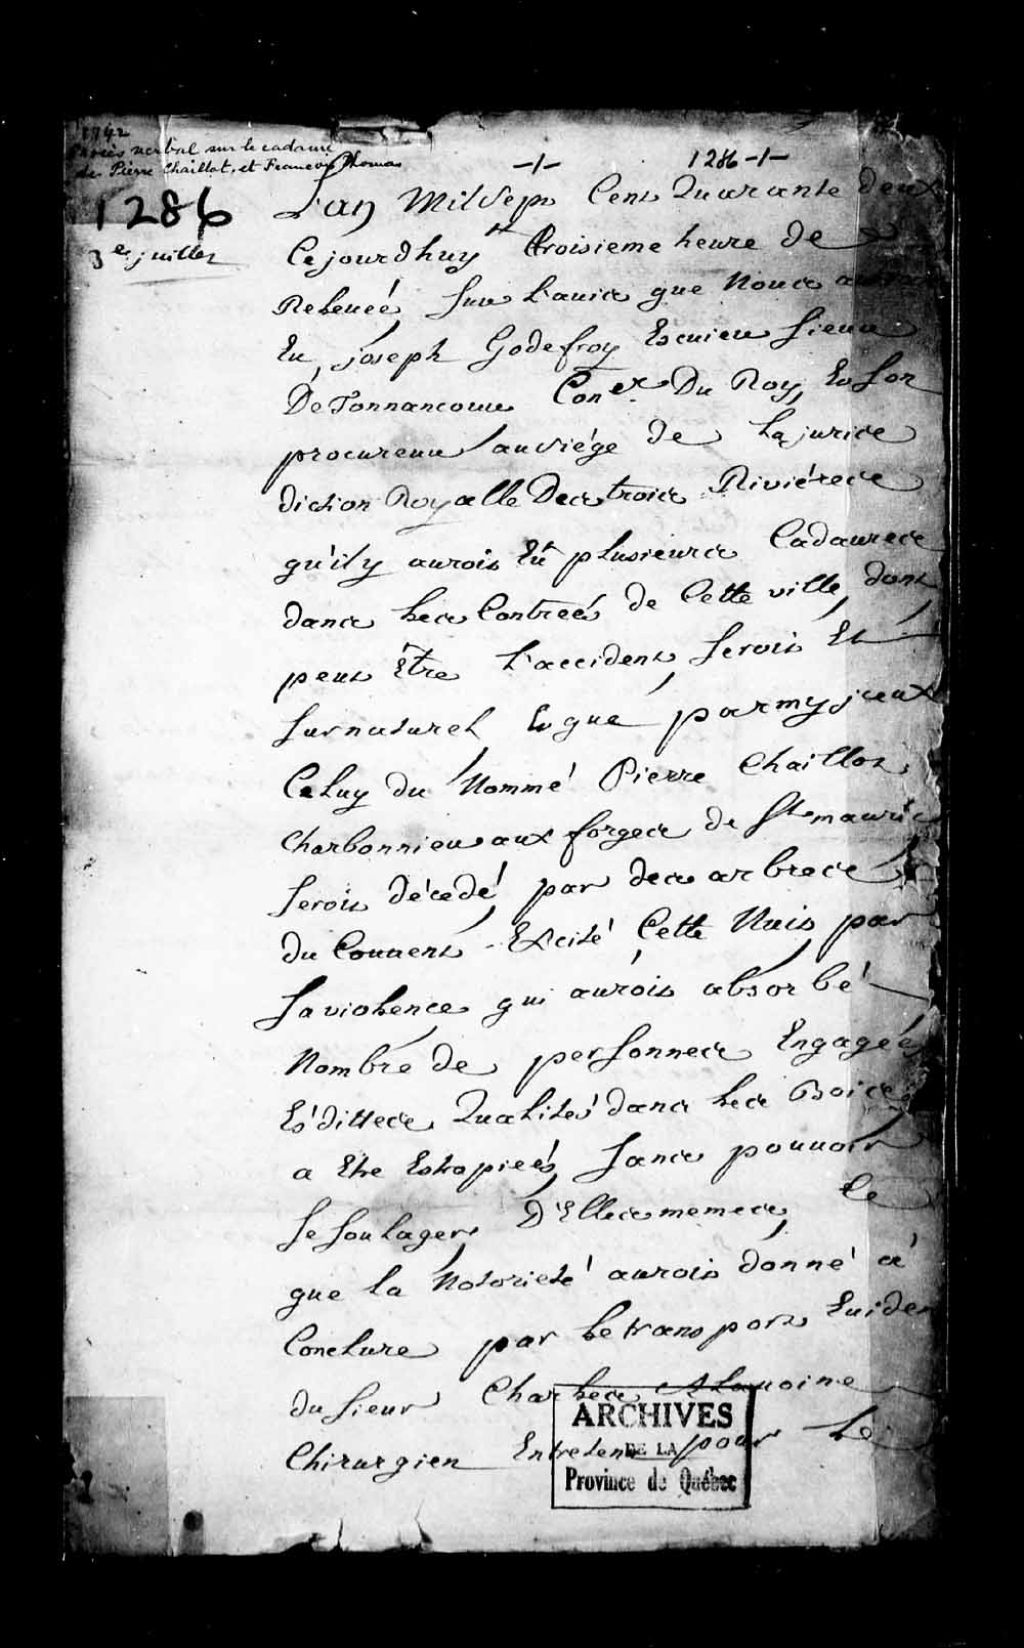 1742
Procès verbal sur le cadavre
de Pierre Chaillot, et Francois Thomas
-1-
1286-1-
1286
3e juillet
L'an Mil Sept Cent Quarante deux
Cejourdhuy troisieme heure de
Relevéé, sur L'avis que Nous a
Eu, joseph Godefroy Escuier sieur
De Tonnancour Coner. Du Roy, Et son
procureur au siége de La juris
diction Royalle Des trois Riviéres
qu'il y auroit Eu plusieurs Cadavres
dans Les Contreés de Cette ville, dont
peut Être L'accident, seroit Et
surnaturel, Et que parmy jceux
Celuy du Nommé Pierre Chaillot,
Charbonnier aux forges de St maurice
seroit décedé, par des arbres
du Couvent Excité Cette Nuit, par
sa violence qui auroit absorbé
Nombre de personnes Engagéés
Es'dittes Qualités dans Les Bois
a Etre Estropieés, sans pouvoir
se soulager, D'Elles memes, Ce
que la Notorieté auroit donné à
Conclure par Le transport Eviden
du sieur Charles Alavoine
Chirurgien Entretenu pour Le
ARCHIVES
DE LA
Province de Québec